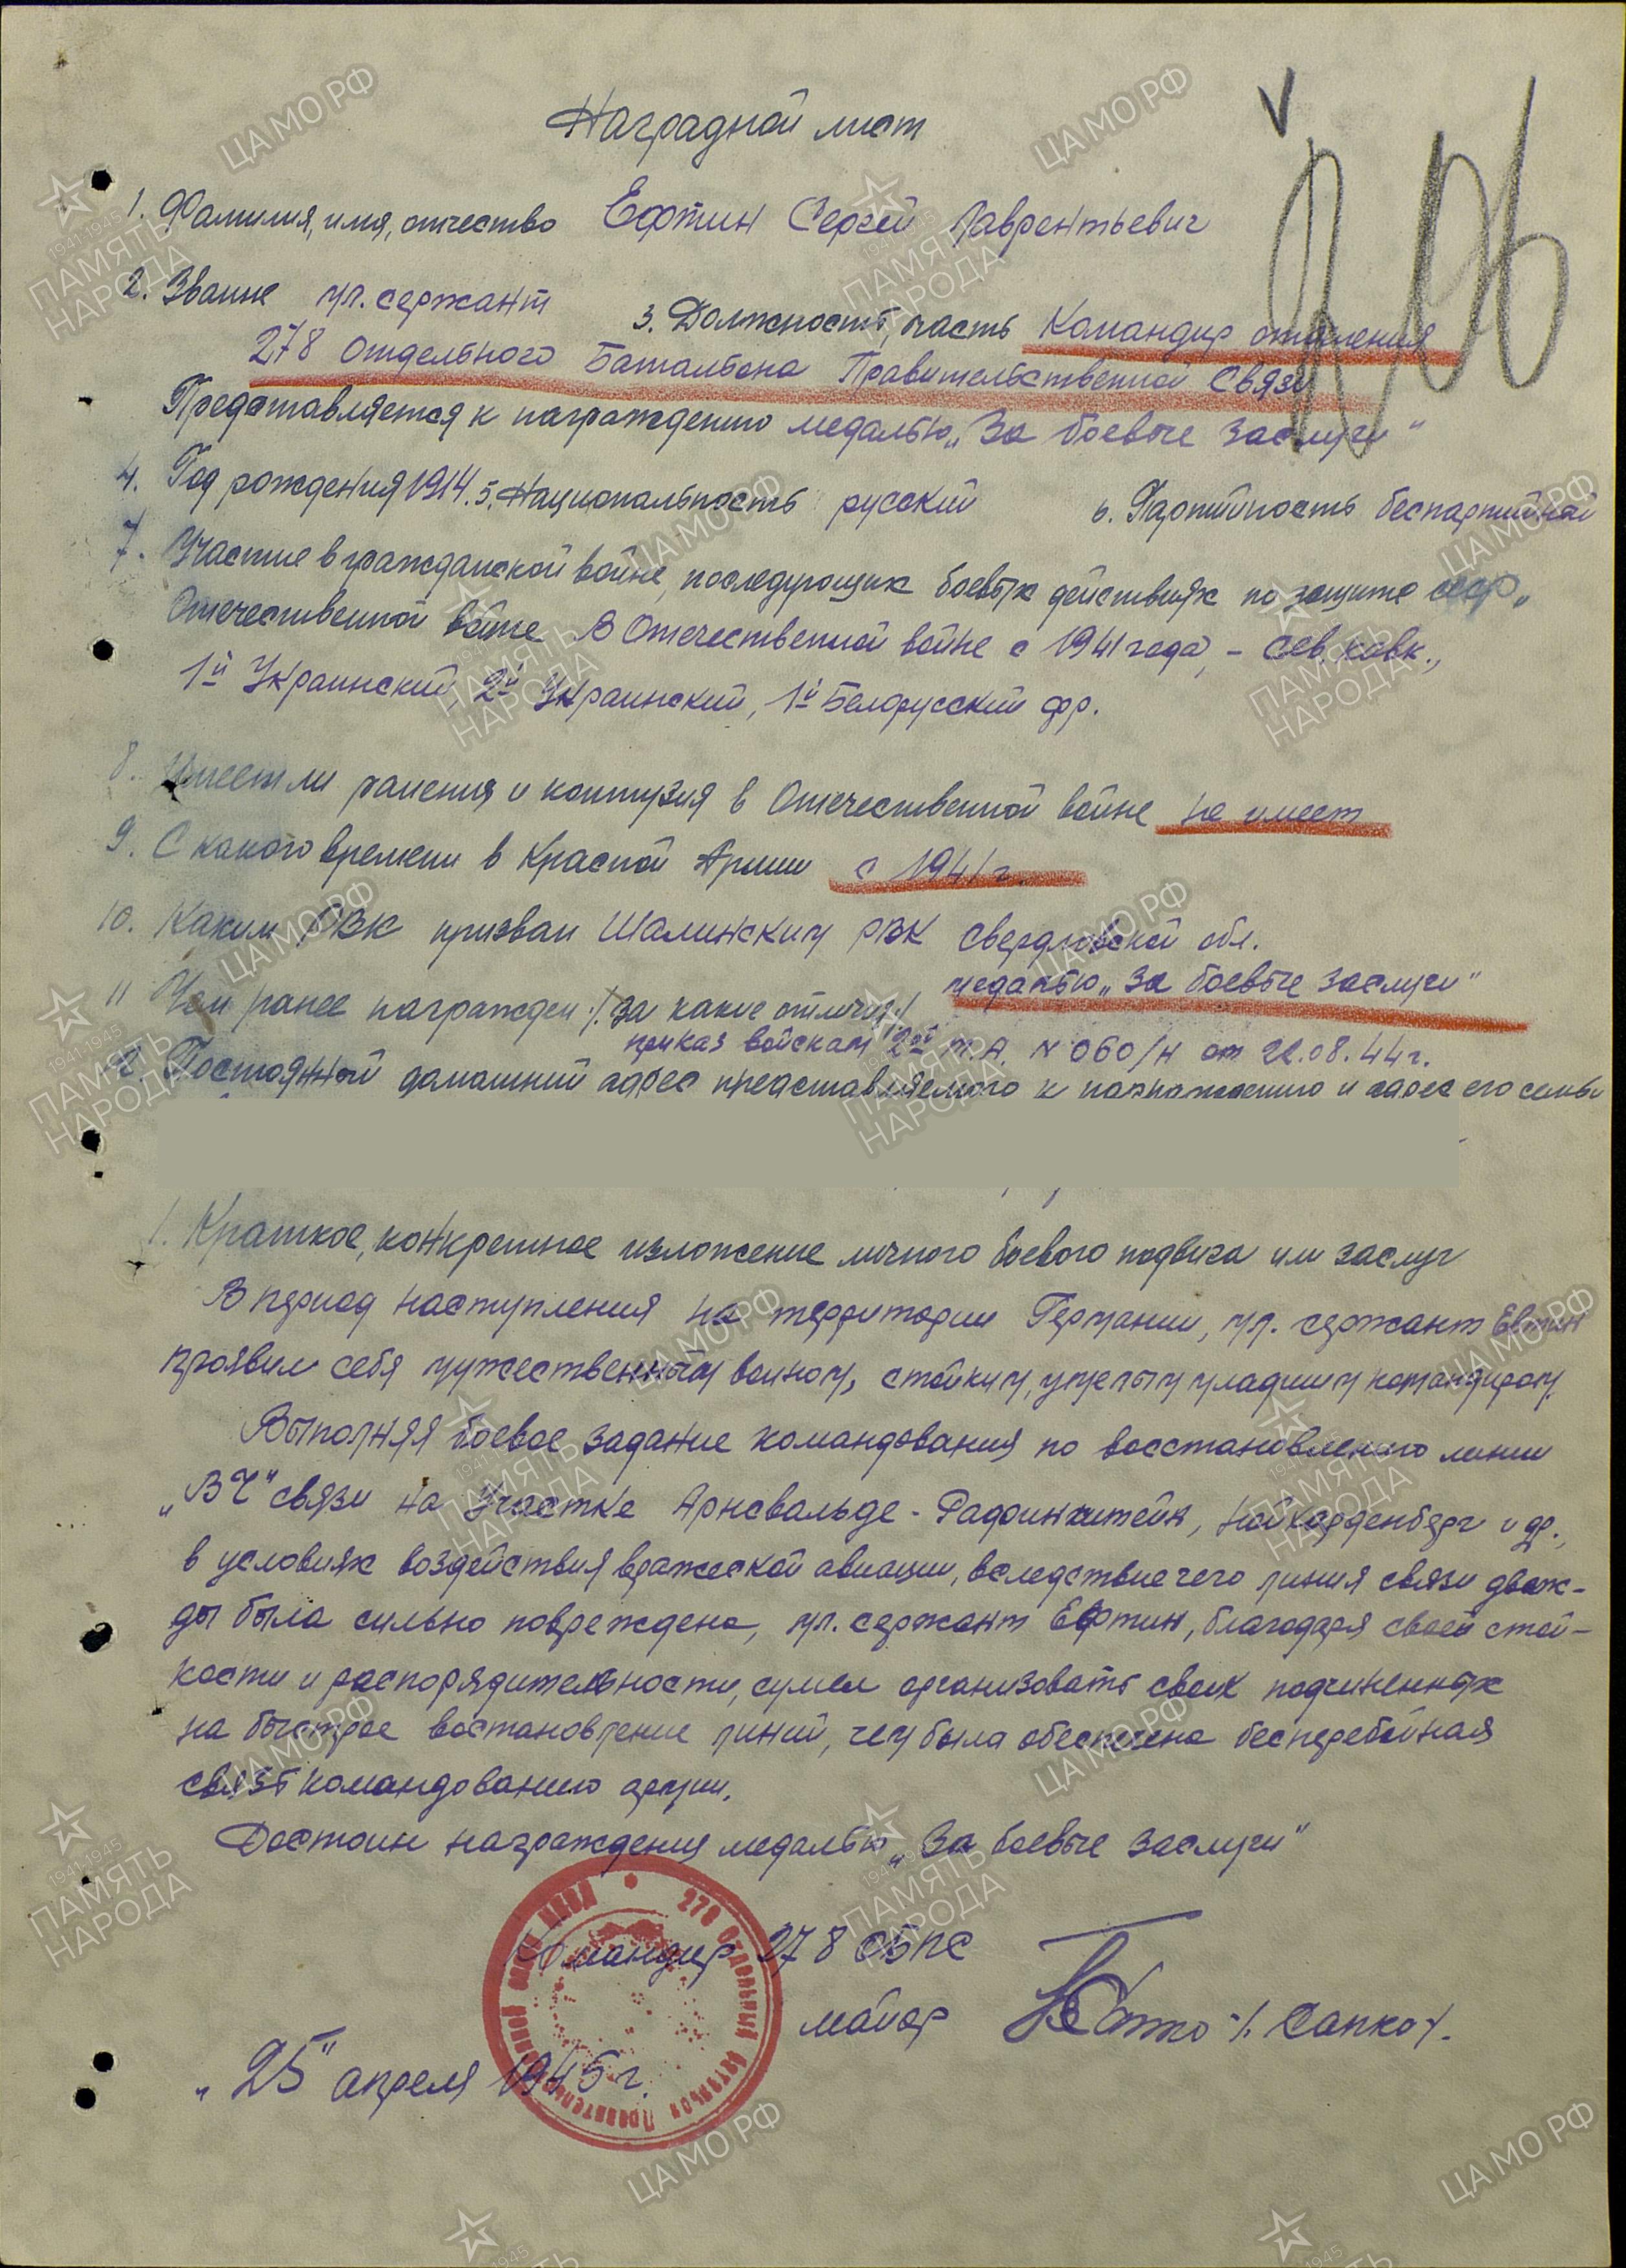 Наградной лист
1. Фамилия, имя, отчество Ефтин Сергей Лаврентьевич
2. Звание мл. сержант 3. Должность, часть Командир отделения
278 Отдельного Батальона Правительственной Связи
Представляется к награждению медалью „За боевые заслуги"
4. Год рождения 1914. 5. Национальность русский 6. Партийность беспартийный
7. Участие в гражданской войне, последующих боевых действиях по защите СССР,
Отечественной войне В Отечественной войне с 1941 года, - Сев. Кавк.,
1й Украинский, 2й Украинский, 1й Белорусский фр.
8. Имеет ли ранения и контузия в Отечественной войне не имеет
9. С какого времени в Красной Армии с 1941 г.
10. Каким РВК призван Шалинским РВК Свердловской обл.
11 Чем ранее награжден /за какие отличия/ медалью „За боевые заслуги"
приказ войскам 2ой Т.А. N 060/н от 22.08.44г.
12. Постоянный домашний адрес представляемого к награждению и адрес его семьи
1. Краткое, конкретное изложение личного боевого подвига или заслуг
В период наступления на территории Германии, мл. сержант Евтин
проявил себя мужественным воином, стойким, умелым младшим командиром.
Выполняя боевое задание командования по восстановлению линии
„ВЧ" связи на участке Арнсвальде - , и др.,
в условиях воздействия вражеской авиации, вследствие чего линия связи дваж-
ды была сильно повреждена, мл. сержант Ефтин, благодаря своей стой-
кости и распорядительности, сумел организовать своих подчиненных
на быстрое востановление линий, чем была обеспечена бесперебойная
связь командованию армии.
Достоин награждения медалью „За боевые заслуги"
Командир 278 ОБПС
майор /. Сапко /.
„25" апреля 1945 г.
278 Отдельный Батальон Правительственной связи НКВД
ЦАМО РФ
1941-1945
ПАМЯТЬ НАРОДА